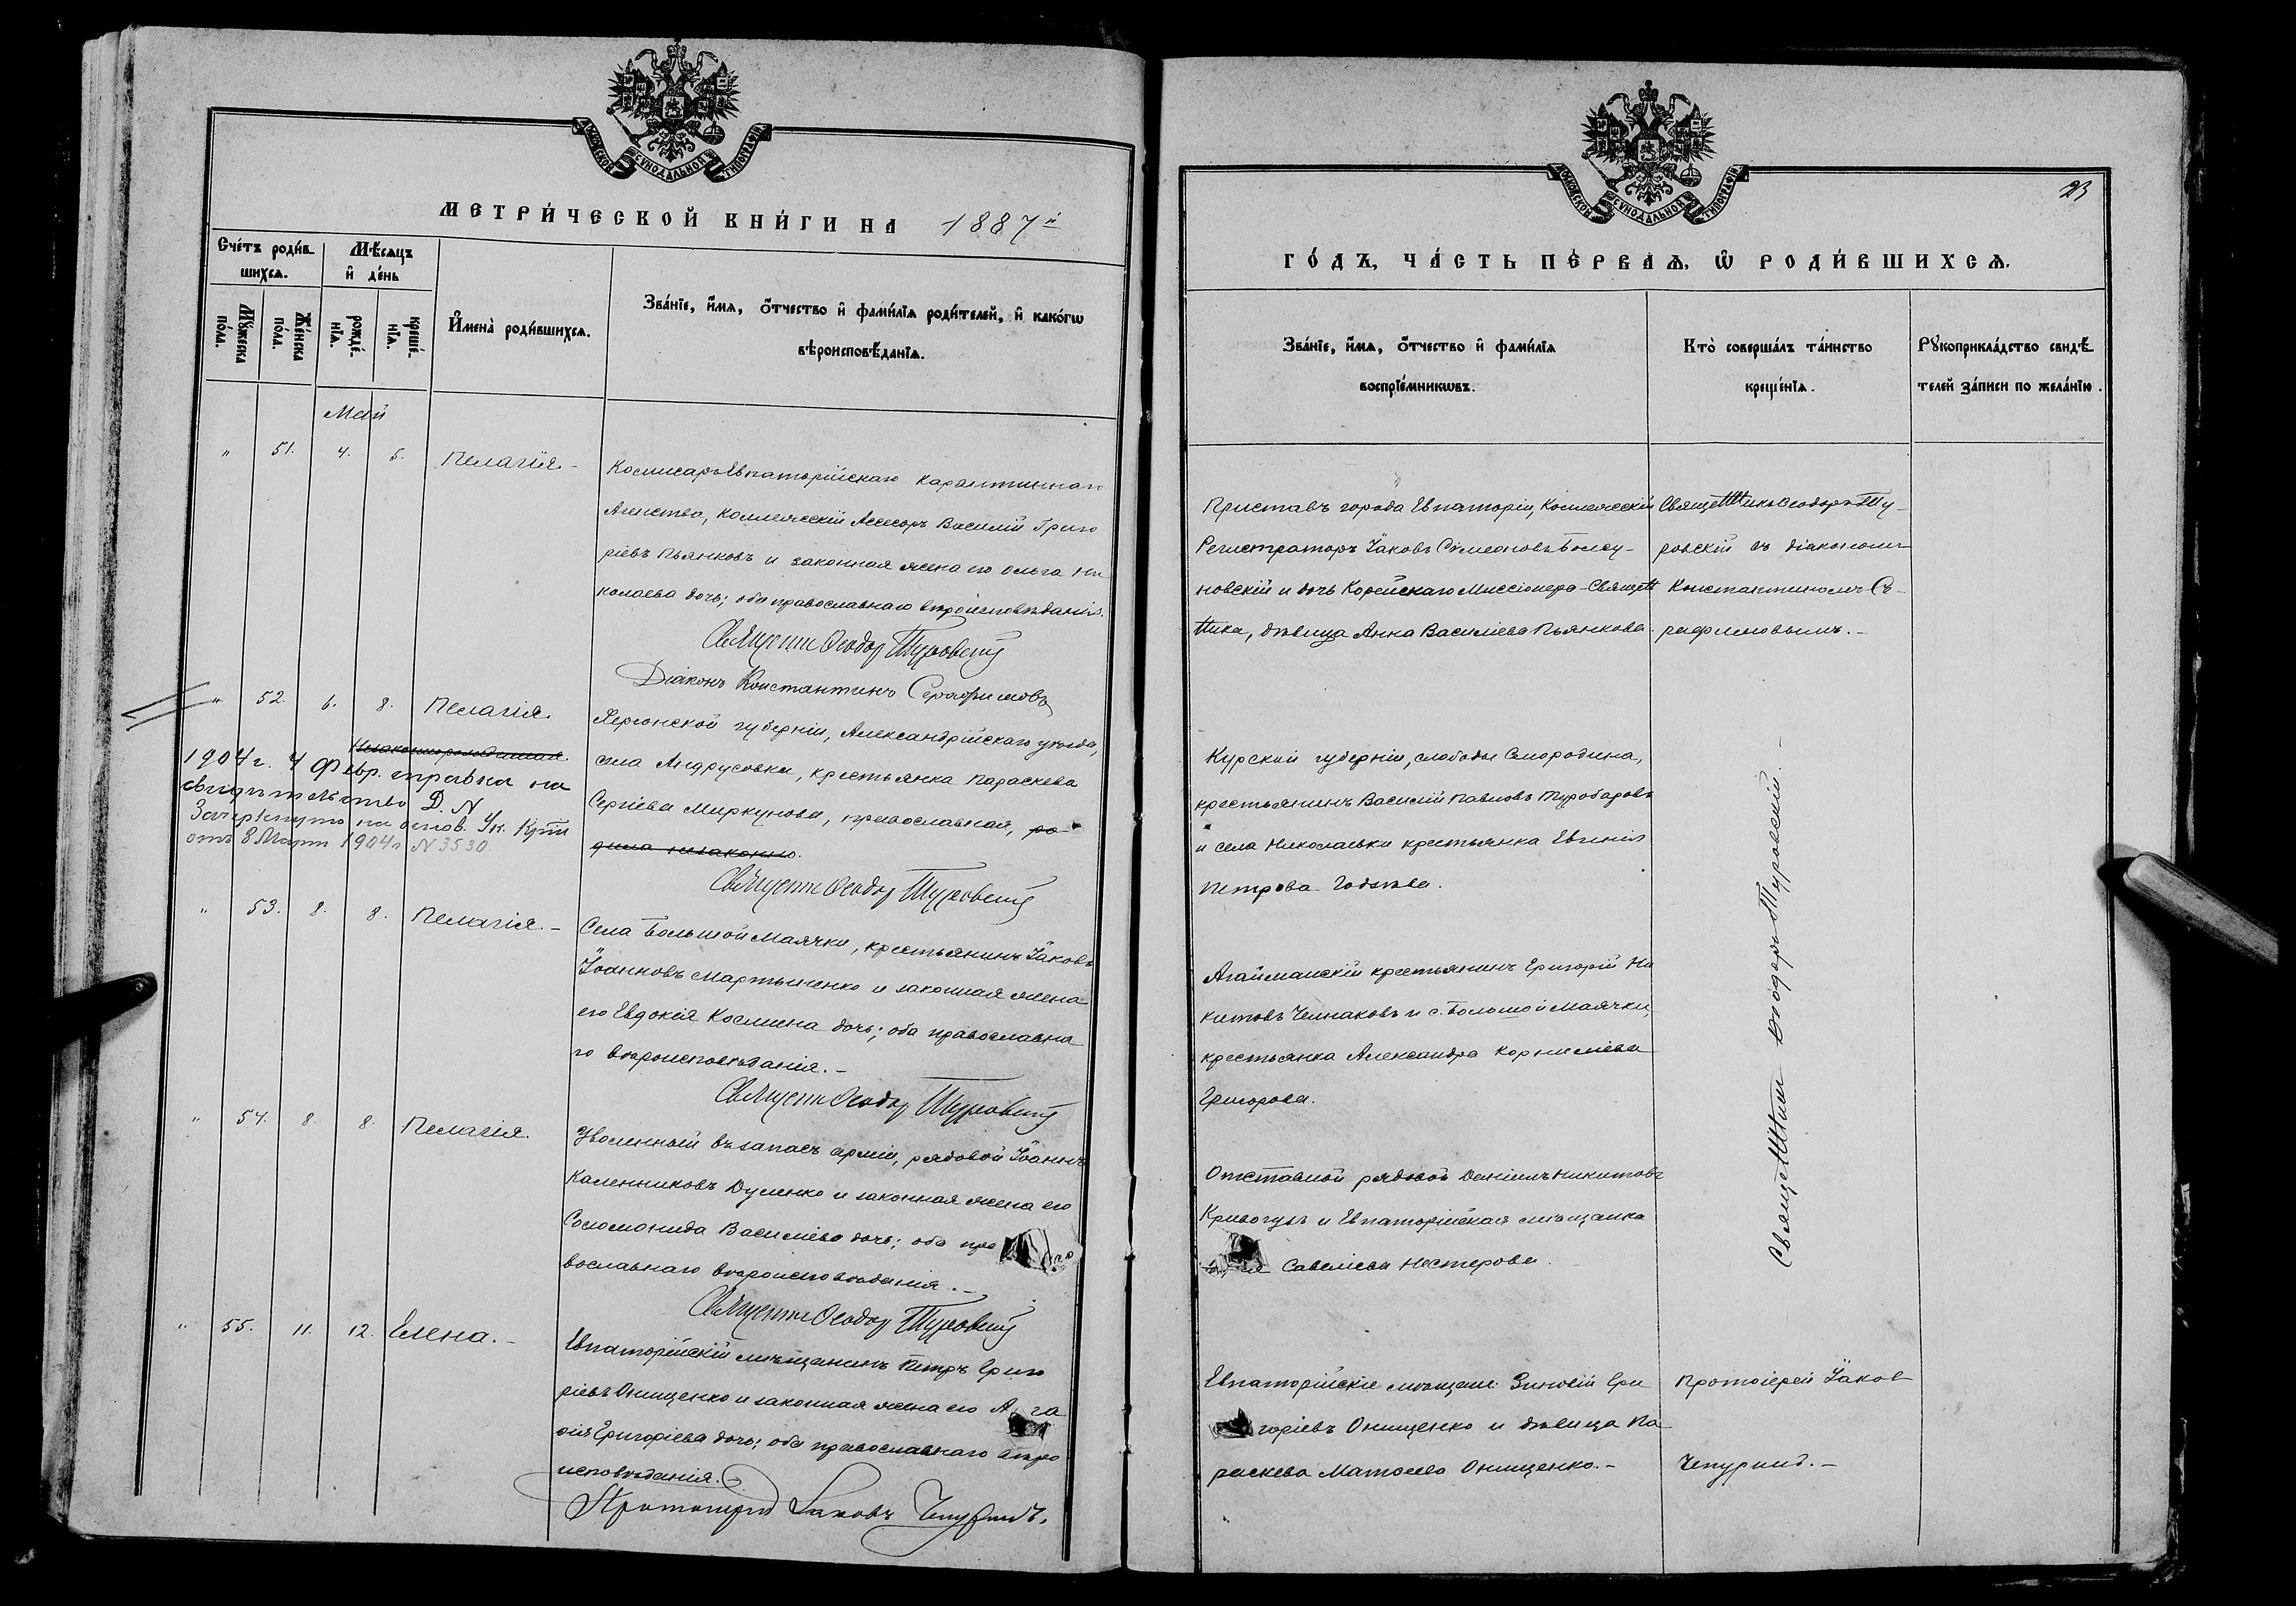 МОСКОВСКОЙ СѴНОДАЛЬНОЙ ТИПОГРАФІИ
МЕТРИ́ЧЕСКОЙ КНИ́ГИ НА 1887й
Счéтъ роди́в
шихся.
Мѣ́сяцъ
и҆ дéнь
Мꙋ́жеска
пóла.
Жéнска
пóла.
рождé-
нїѧ.
крещé-
нїѧ.
И҆мена̀ роди́вшихсѧ.
Звáнїе, и҆́мѧ, ѻ҆́тчество и҆ фами́лїѧ роди́телей, и҆ какóгѡ
вѣроисповѣ́данїѧ.
Май
" 51. 4. 5. Пелагія. -
Комисаръ Евпаторійскаго Карантиннаго
Агенства, Коллежскій Ассесоръ Василій Григо
ріевъ Пьянковъ и законная жена его Ольга Ни
колаева дочь; оба православнаго вѣроисповѣданія.
Священн Ѳеодор Туровскій
Діаконъ Константинъ Серафимовъ
" 52. 6. 8. Пелагія.
Незаконнорожденная
Херсонской губерніи, Александрійскаго уѣзда,
села Андрусовки, крестьянка Параскева
Сергіева Миркунова, православная, ро
дила незаконно.
Священн Ѳеодор Туровскій
1904 г. 4 Февр. справка на
свидѣтельство Д. N
Зачеркнуто на основ. Ук. Крти
отъ 8 Март 1904 г. N 3530
" 53. 8. 8. Пелагія. -
Села Большой Маячки, крестьянинъ Іаковъ
Іоанновъ Мартыненко и законная жена
его Евдокія Космина дочь; оба православна
го вѣроисповѣданія. -
Священн Ѳеодор Туровскій
" 54. 8. 8. Пелагія.
Уволенный въ запасъ арміи, рядовой Іоаннъ
Каленниковъ Дуленко и законная жена его
Соломонида Василіева дочь; оба пра
вославнаго вѣроисповѣданія. -
Священн Ѳеодор Туровскій
" 55. 11. 12. Елена. -
Евпаторійскій мѣщанинъ Петръ Григо
ріевъ Онищенко и законная жена его Ага
фія Григоріева дочь; оба православнаго вѣро
исповѣданія.
Протоіерей Іаковъ Чепуринъ.
МОСКОВСКОЙ СѴНОДАЛЬНОЙ ТИПОГРАФІИ
23
ГÓДЪ, ЧÁСТЬ ПÉРВАѦ, Ѡ҆ РОДИ́ВШИХСѦ.
Звáнїе, и҆́мѧ, ѻ҆́тчество и҆ фами́лїѧ
воспрїéмникѡвъ.
Ктò совершáлъ тáинство
крещéнїѧ.
Рꙋкоприклáдство свидѣ́
телей зáписи по желáнїю.
Приставъ города Евпаторіи, Коллежскій
Регистраторъ Іаковъ Сѵмеоновъ
новскій и дочь Корейскаго Миссіонера - Священ
ника, дѣвица Анна Василіева Пьянкова.
Священникъ Ѳеодоръ Ту-
ровскій съ діакономъ
Константиномъ Се-
рафимовымъ. -
Курской губерніи, слободы Смородина,
крестьянинъ Василій Павловъ Туробаровъ
и села Николаевки крестьянка Евгенія
Петрова
Агайманскій крестьянинъ Григорій Ни
китовъ Чепнаковъ и с. Большой Маячки,
крестьянка Александра Корниліева
Григорова.
Отставной рядовой Даніилъ Никитовъ
и Евпаторійская мѣщанка
Савеліева Нестерова.
Священникъ Ѳеодоръ Туровскій. -
Евпаторійскіе мѣщане: Зиновій Гри
горіевъ Онищенко и дѣвица Па
раскева Матѳеева Онищенко. -
Протоіерей Іаков
Чепуринъ. -